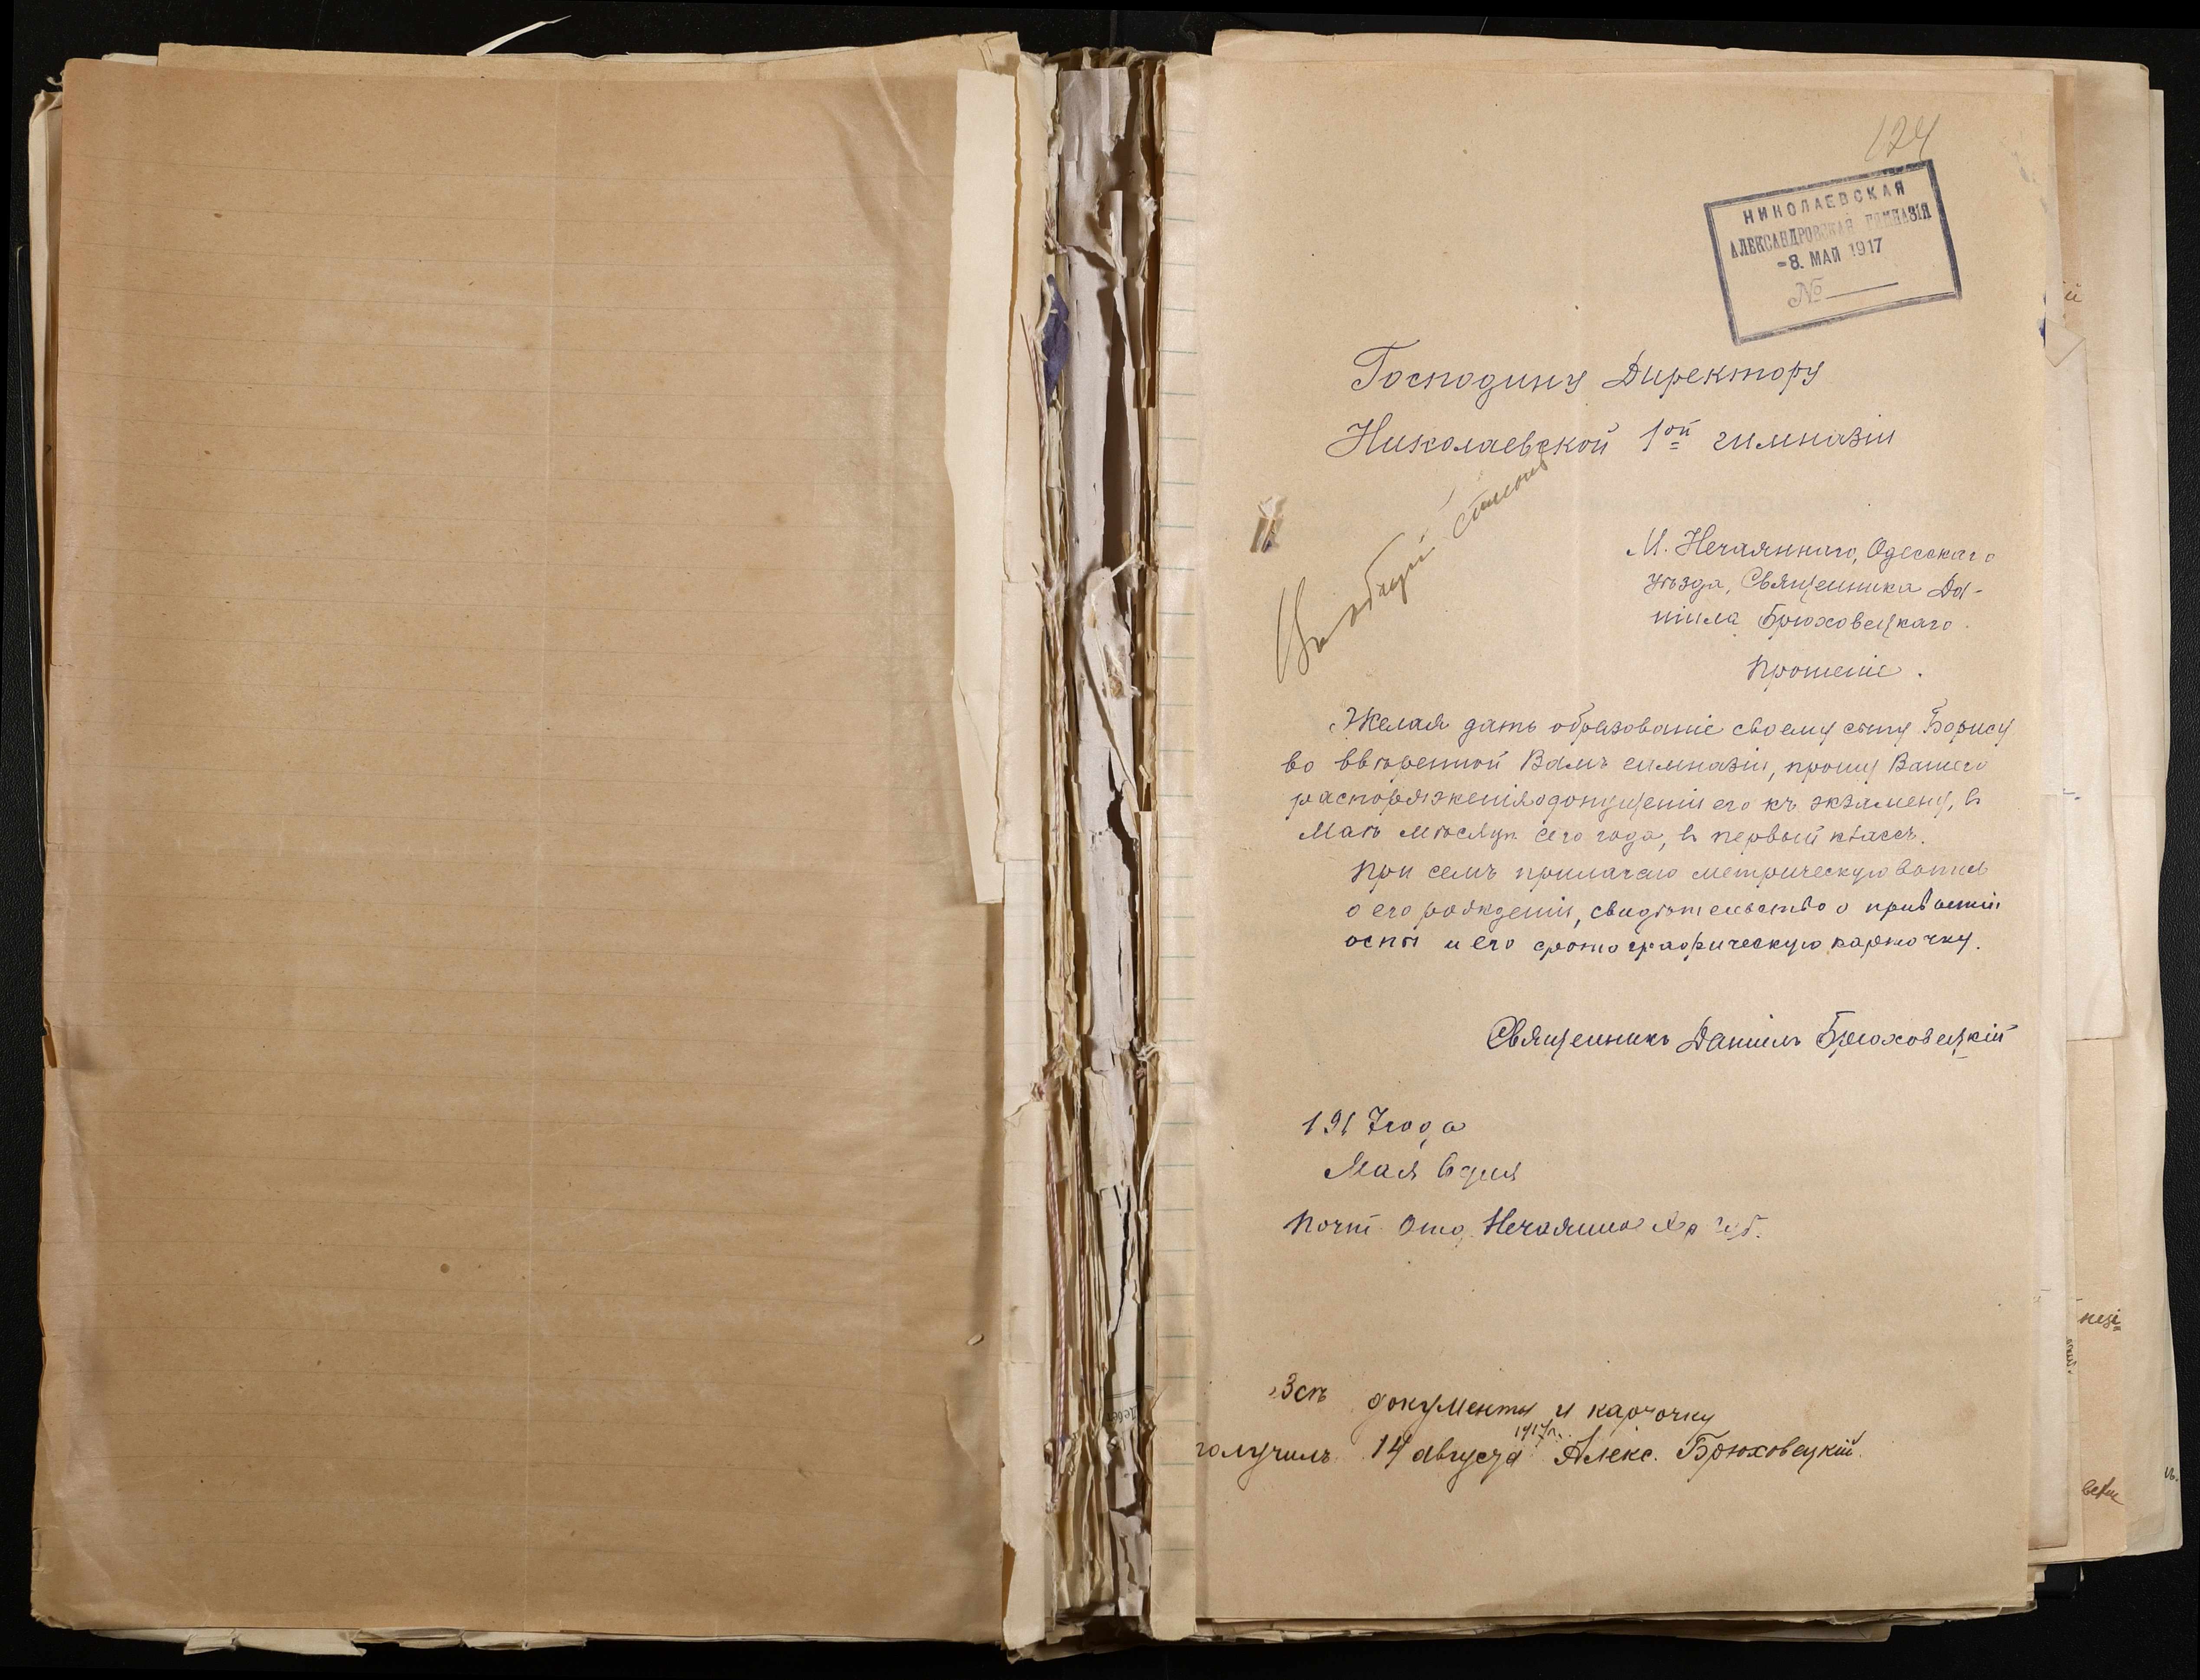 124
НИКОЛАЕВСКАЯ
АЛЕКСАНДРОВСКАЯ ГИМНАЗІЯ
-8. МАЙ 1917
№
Господину Директору
Николаевской 1ой гимназіи
М. Нечаяннаго, Одесскаго
уѣзда, Священника Да-
ніила Брюховецкаго.
Прошеніе.
Желая дать образованіе своему сыну Борису
во ввѣренной Вамъ гимназіи, прошу Вашего
распоряженія о допущеніи его къ экзамену, в
Маѣ мѣсяцѣ сего года, в первый классъ.
При семъ прилагаю метрическую
о его рожденіи, свидѣтельство о привитіи
оспы и его фотографическую карточку.
Священникъ Даніилъ Брюховецкій
1917 года
Мая 6 дня
Почт. Отд. Нечаянное Хр губ.
документы и карточку
получилъ 14 августа 1917 г. Алекс. Брюховецкій.